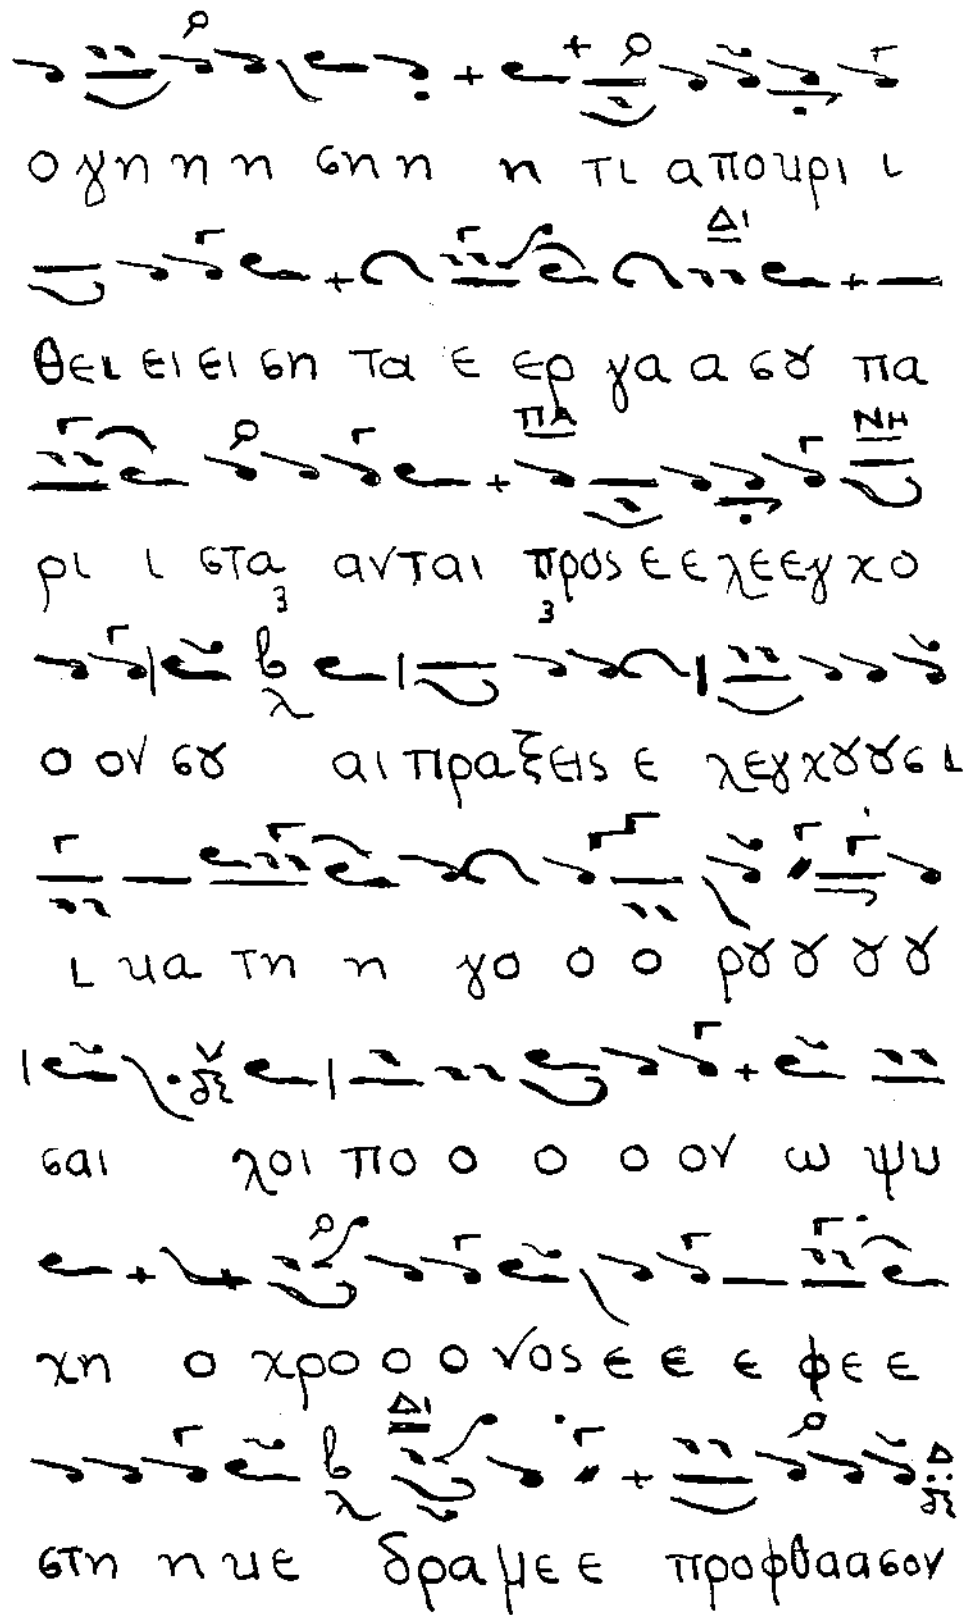 ο γη η η ση η η τι α ποκρι ι
Δι
θει ει ει ση τα ε ερ γα α σȣ πα
ΠΑ ΝΗ
ρι ι στα ανται προς ε ε λεεγχο
ο ον σȣ αι πραξεις ε λεγχȣȣσι
ι κα τη η γο ο ο ρȣ ȣ ȣ ȣ
σαι λοι πο ο ο ο ον ω ψυ
χη ο χρο ο ο νος ε ε ε φε ε
Δι
στη η κε δραμε ε προφθαασον